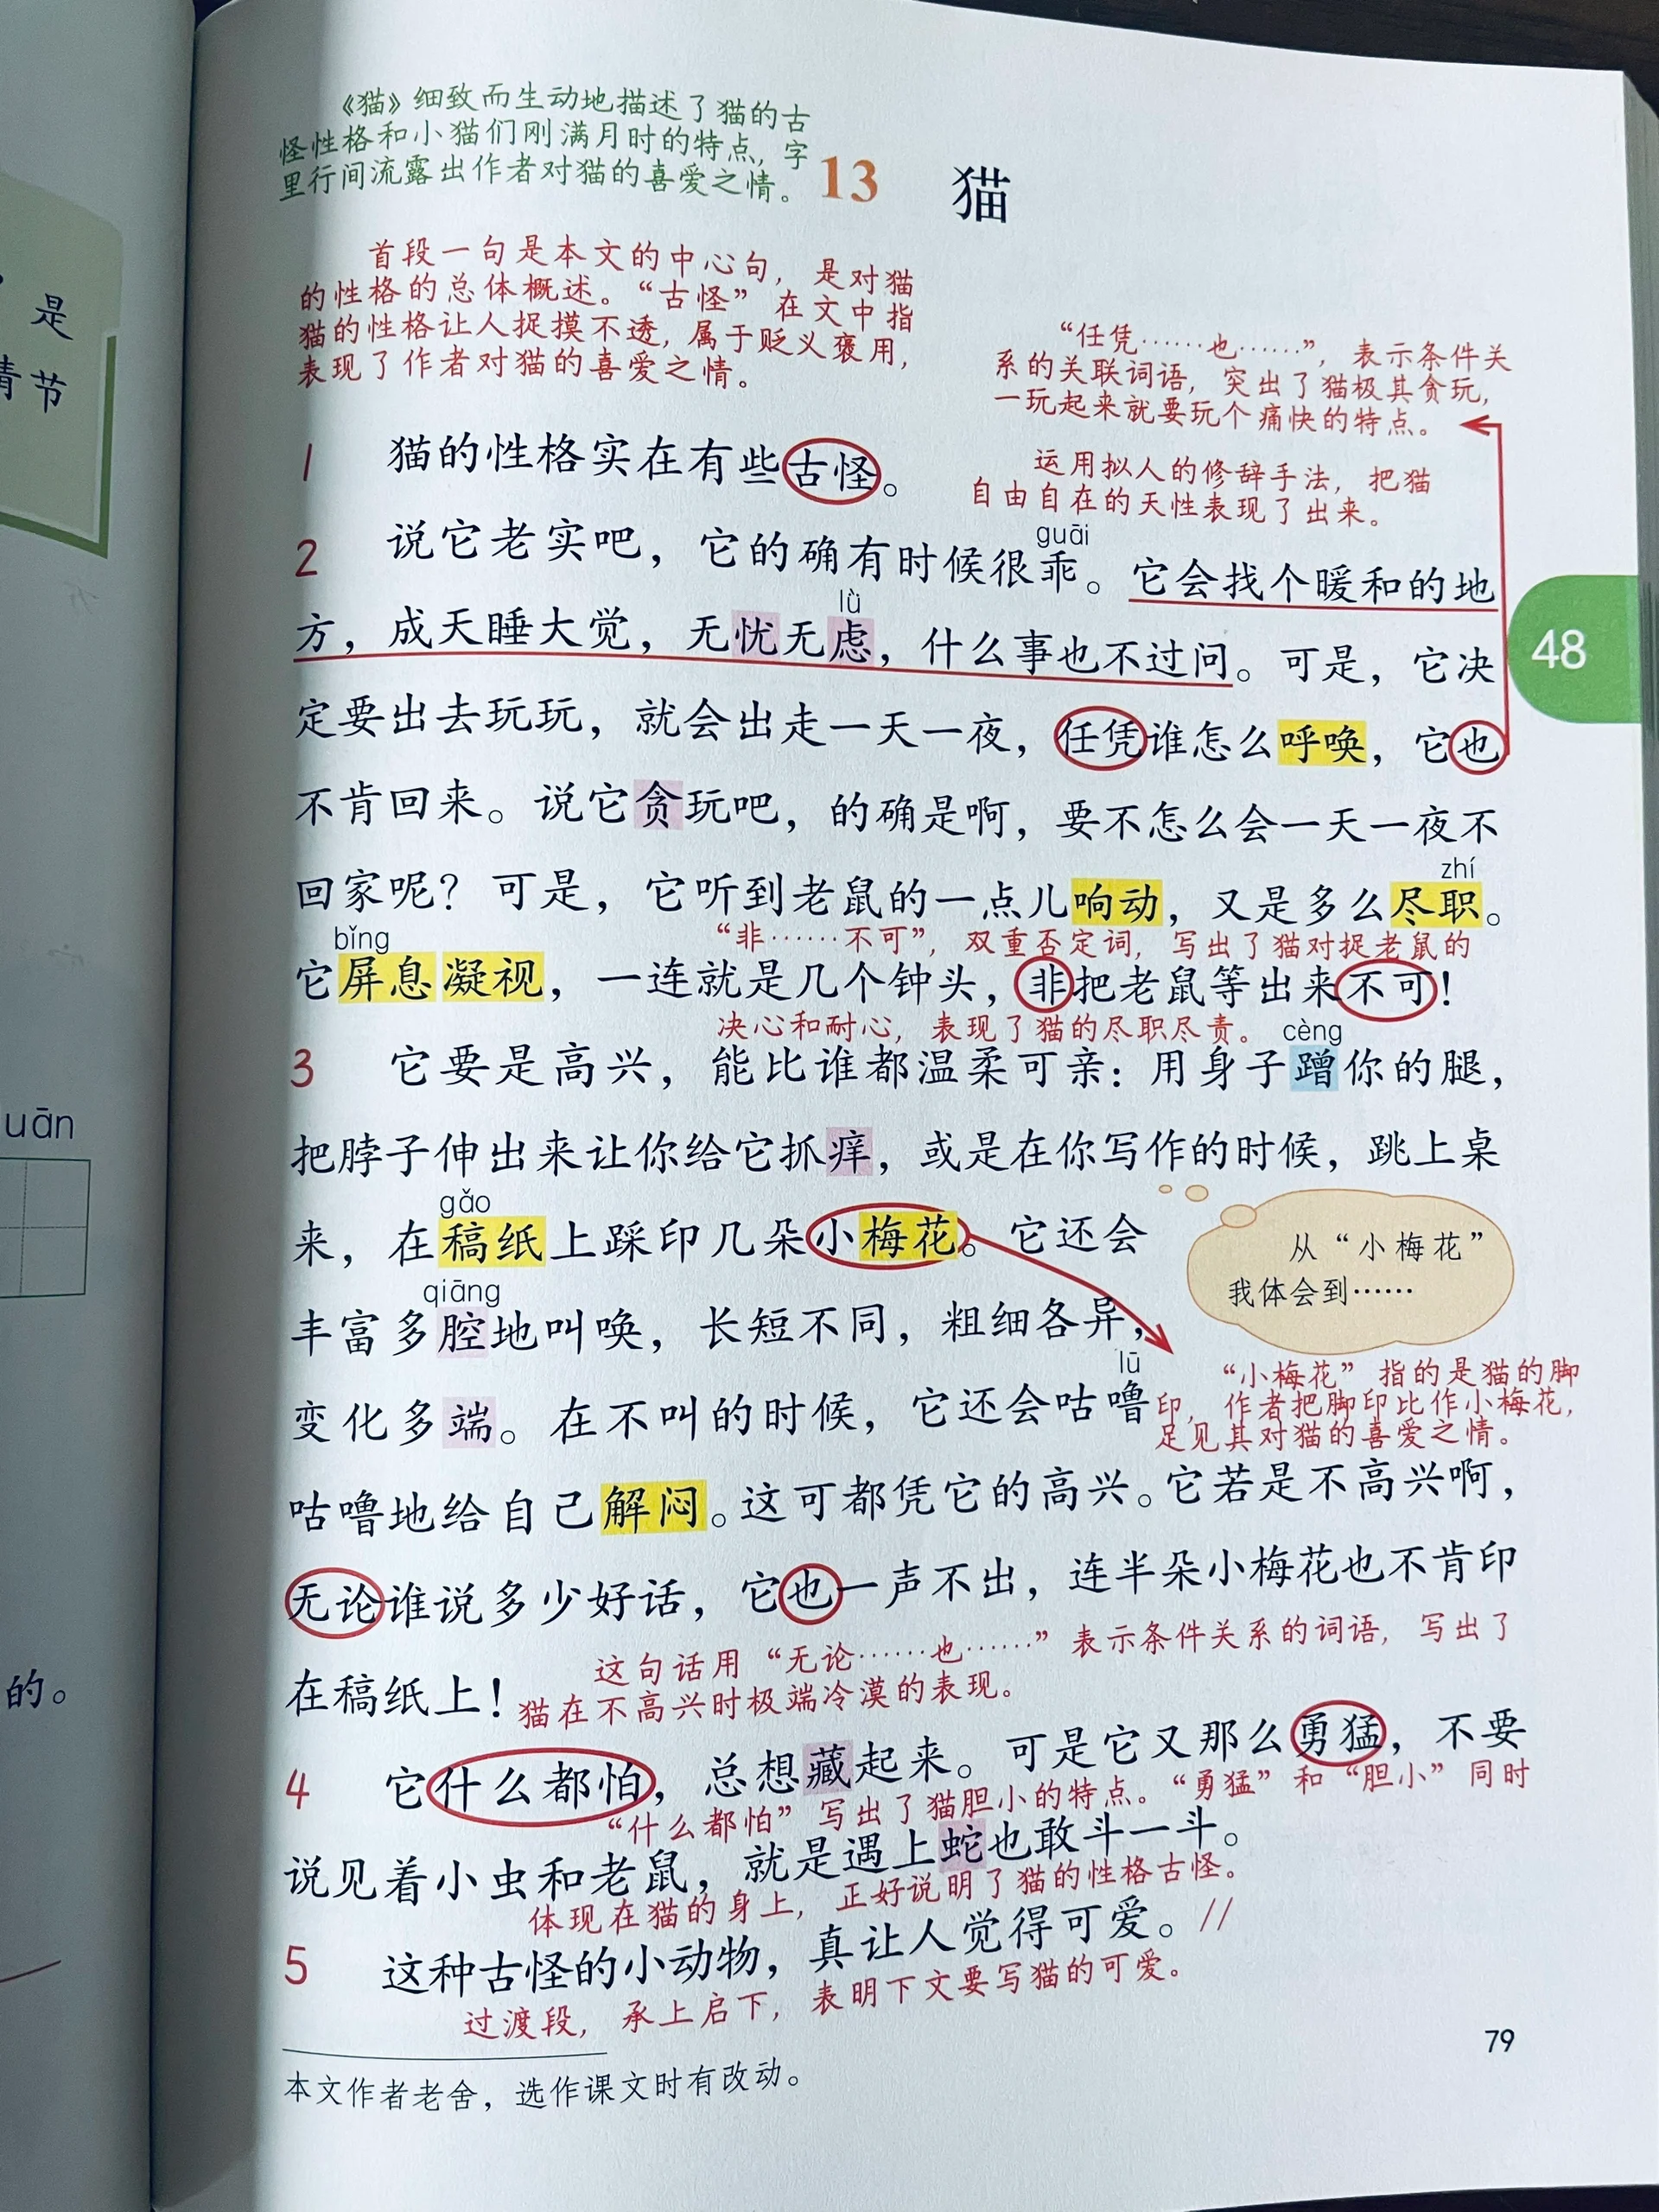 《猫》细致而生动地描述了猫的古
怪性格和小猫们刚满月时的特点，字
里行间流露出作者对猫的喜爱之情。
13 猫
首段一句是本文的中心句，是对猫
的性格的总体概述。“古怪”在文中指
猫的性格让人捉摸不透，属于贬义褒用，
表现了作者对猫的喜爱之情。
“任凭……也……”，表示条件关
系的关联词语，突出了猫极其贪玩，
一玩起来就要玩个痛快的特点。
1 猫的性格实在有些古怪。
运用拟人的修辞手法，把猫
自由自在的天性表现了出来。
guāi
2 说它老实吧，它的确有时候很乖。它会找个暖和的地
lǜ
方，成天睡大觉，无忧无虑，什么事也不过问。可是，它决
48
定要出去玩玩，就会出走一天一夜，任凭谁怎么呼唤，它也
不肯回来。说它贪玩吧，的确是啊，要不怎么会一天一夜不
zhí
回家呢？可是，它听到老鼠的一点儿响动，又是多么尽职。
bǐng
“非……不可”，双重否定词，写出了猫对捉老鼠的
它屏息凝视，一连就是几个钟头，非把老鼠等出来不可！
决心和耐心，表现了猫的尽职尽责。
cèng
3 它要是高兴，能比谁都温柔可亲：用身子蹭你的腿，
把脖子伸出来让你给它抓痒，或是在你写作的时候，跳上桌
gǎo
来，在稿纸上踩印几朵小梅花。它还会
从“小梅花”
我体会到……
qiāng
丰富多腔地叫唤，长短不同，粗细各异，
lū
“小梅花”指的是猫的脚
印，作者把脚印比作小梅花，
足见其对猫的喜爱之情。
变化多端。在不叫的时候，它还会咕噜
咕噜地给自己解闷。这可都凭它的高兴。它若是不高兴啊，
无论谁说多少好话，它也一声不出，连半朵小梅花也不肯印
在稿纸上！
这句话用“无论……也……”表示条件关系的词语，写出了
猫在不高兴时极端冷漠的表现。
4 它什么都怕，总想藏起来。可是它又那么勇猛，不要
“什么都怕”写出了猫胆小的特点。“勇猛”和“胆小”同时
说见着小虫和老鼠，就是遇上蛇也敢斗一斗。
体现在猫的身上，正好说明了猫的性格古怪。
5 这种古怪的小动物，真让人觉得可爱。//
过渡段，承上启下，表明下文要写猫的可爱。
79
本文作者老舍，选作课文时有改动。
是
情节
uān
的。